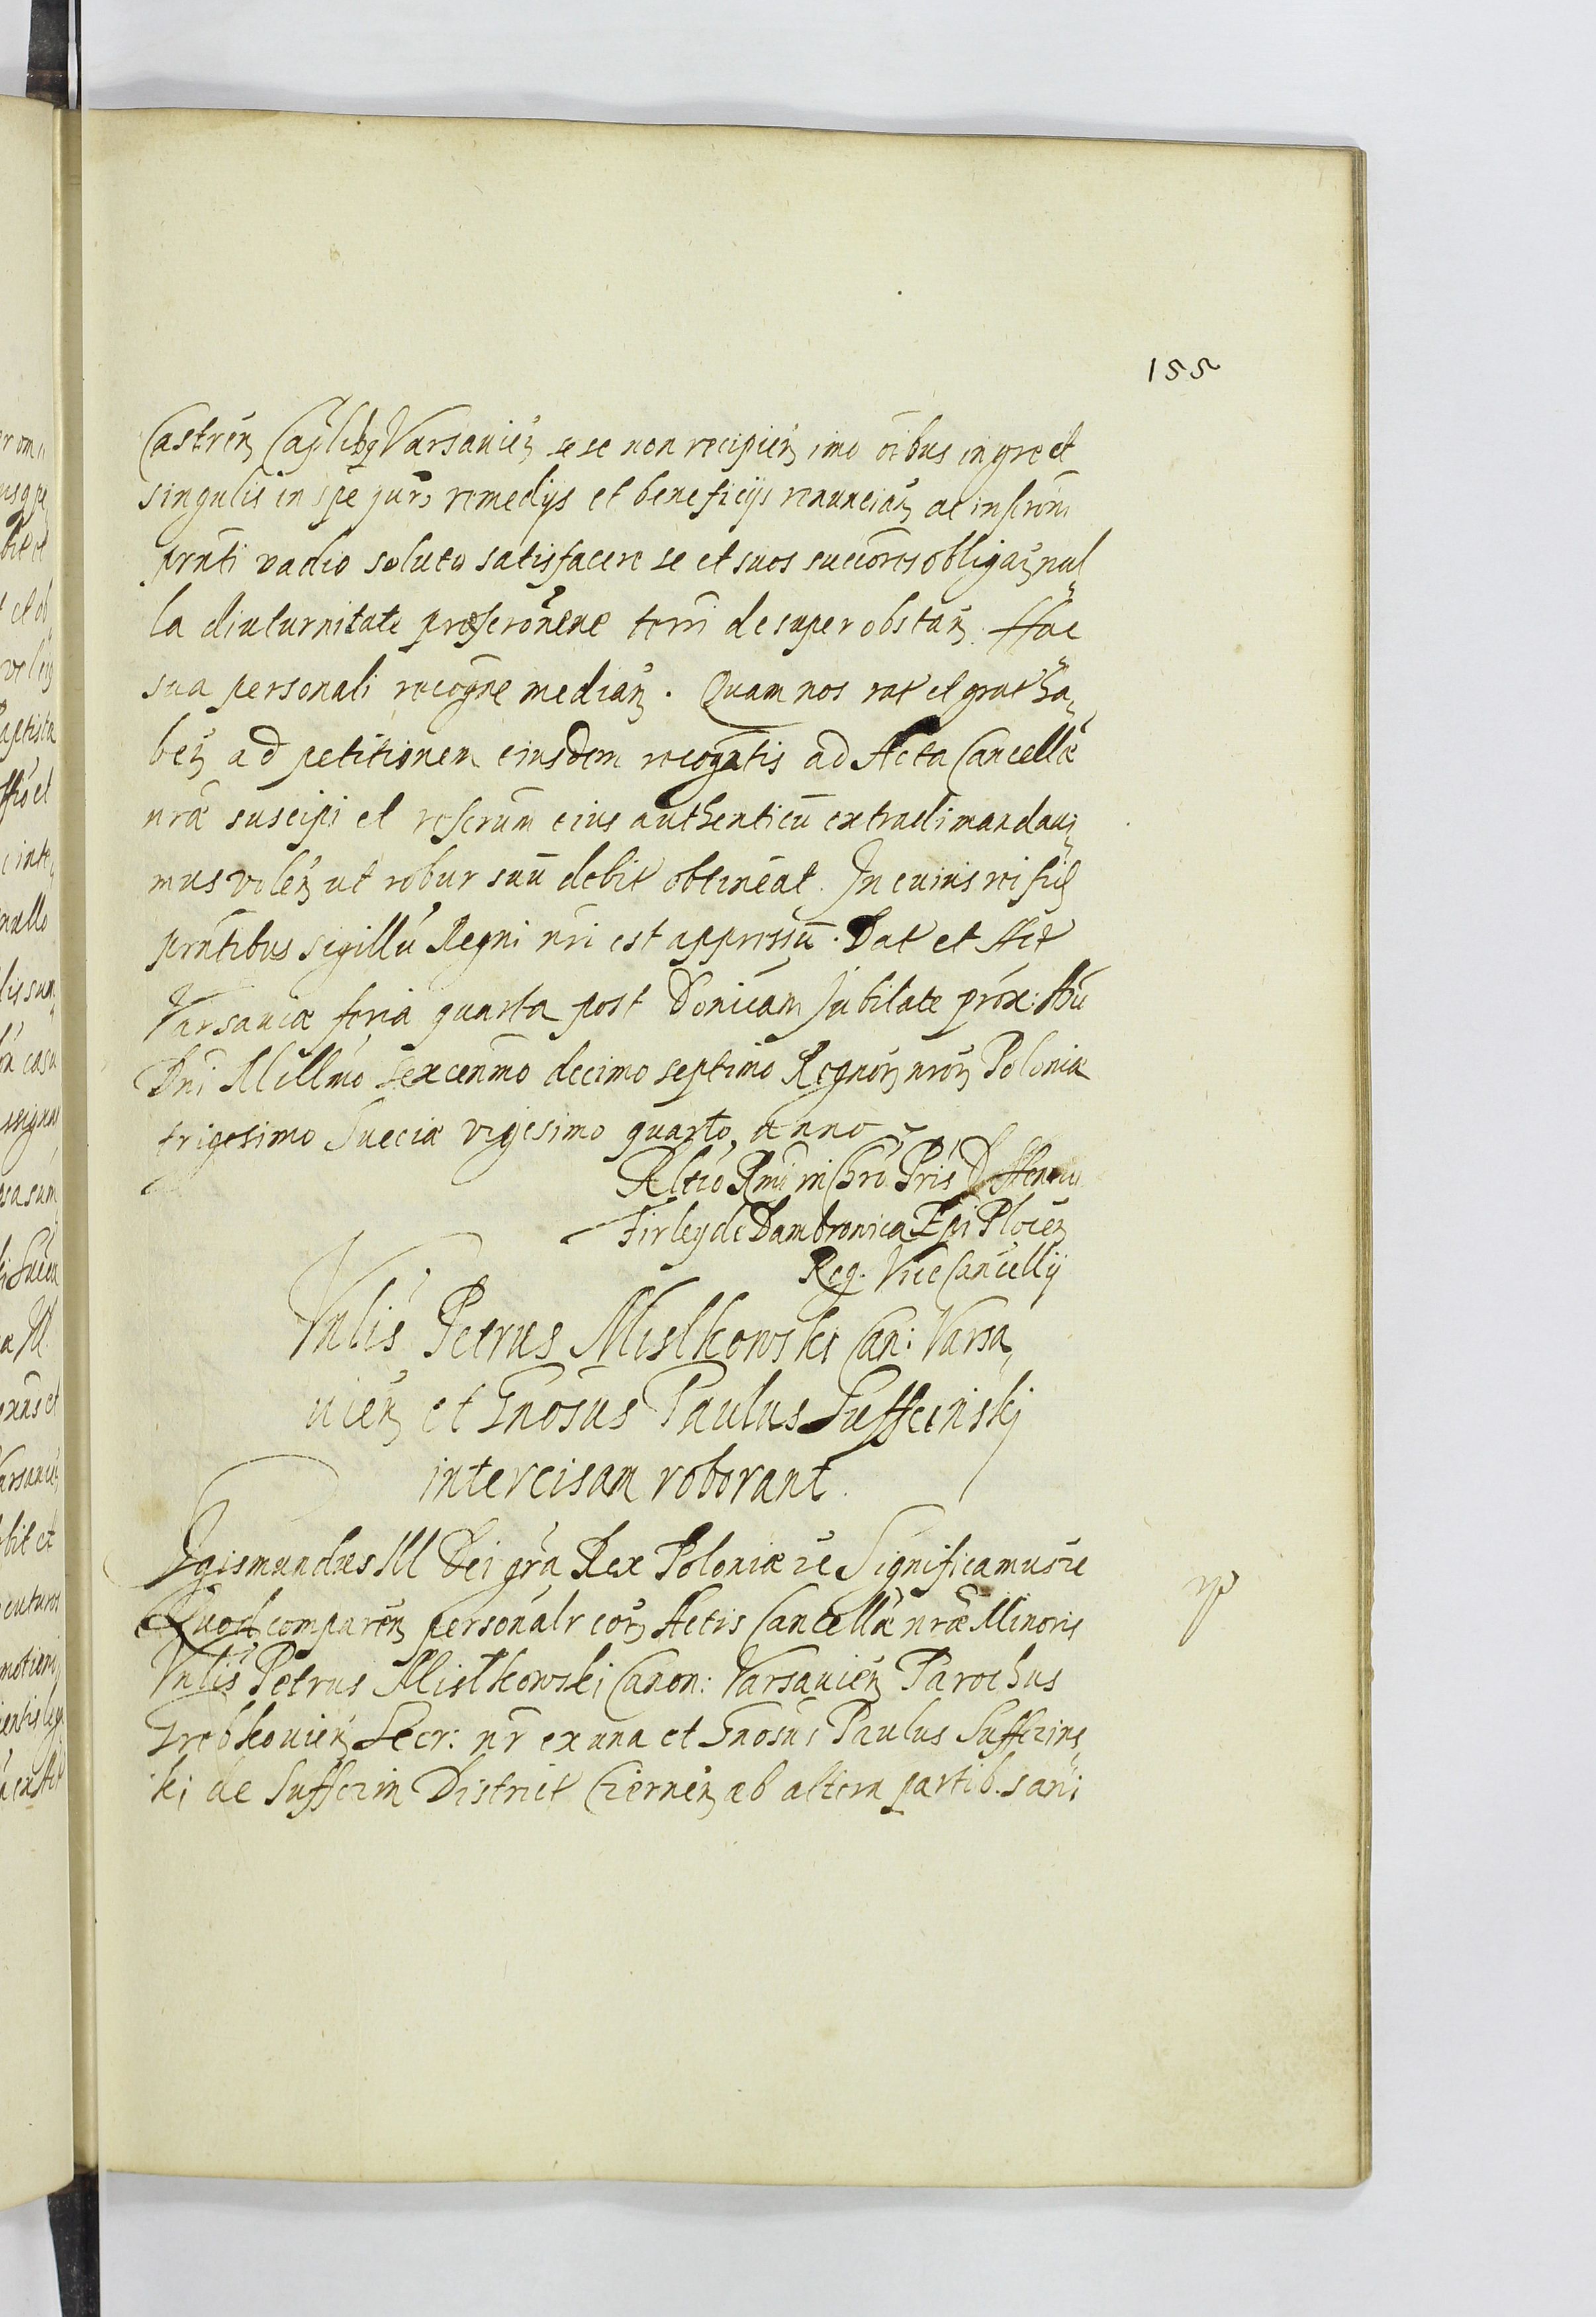 155
Castreñ Varsavień se se non recipień imo oībus in gre et
singulis in spe juris remedijs et beneficijs renuncian̄ ac inscrōni
prn̄ti vadio soluto satisfacere se et suos succōres obligan̄ nul
la diuturnitate præscrōneue terri desuper obstan̄. Hac
sua personali recogne̅ median̄. Quam nos rat et grat ha,
ben̄ ad petitionem eiusdem recogn̄tis ad Acta Cancellæ
nr̄æ suscipi et rescrum̄ eius authenticū extradi mandaui,
mus volen̄ ut robur suū debit obtineat. In cuius rei fid
prn̄tibus sigillū Regni nr̄i est appressū. Dat et Act
Varsaviæ feria quarta post Donīcam Jubilate prox: An̄
Dn̄i Mill̄mo Sexcen̄mo decimo septimo Regnor̄ nror̄ Poloniæ
trigesimo Sueciæ vigesimo quarto anno
Rel̄tio Rm̄i in Chrō Pr̄is D Henrici
Firley de Dambrouica Ep̄i Plocen̄
Reg. Vice Cancellӯ
Vn̄lis Petrus Mislkowski Can: Varsa,
uien̄ et Gn̄osus Paulus Suffcinskj
intercisam roborant.
Sigismundus III Dei gr̄a Rex Poloniæ ꝛc Significamus ꝛc
Quod comparen̄ personalr cor̄ Actis Cancellæ nr̄æ Minoris
Vn̄lis Petrus Mislkowski Canon: Varsauien̄ Parochus
Grebkouien̄ Secr: nr̄ ex una et Gn̄osus Paulus Suffczins,
ki de Suffczin District Czernen̄ ab altera partib. sani